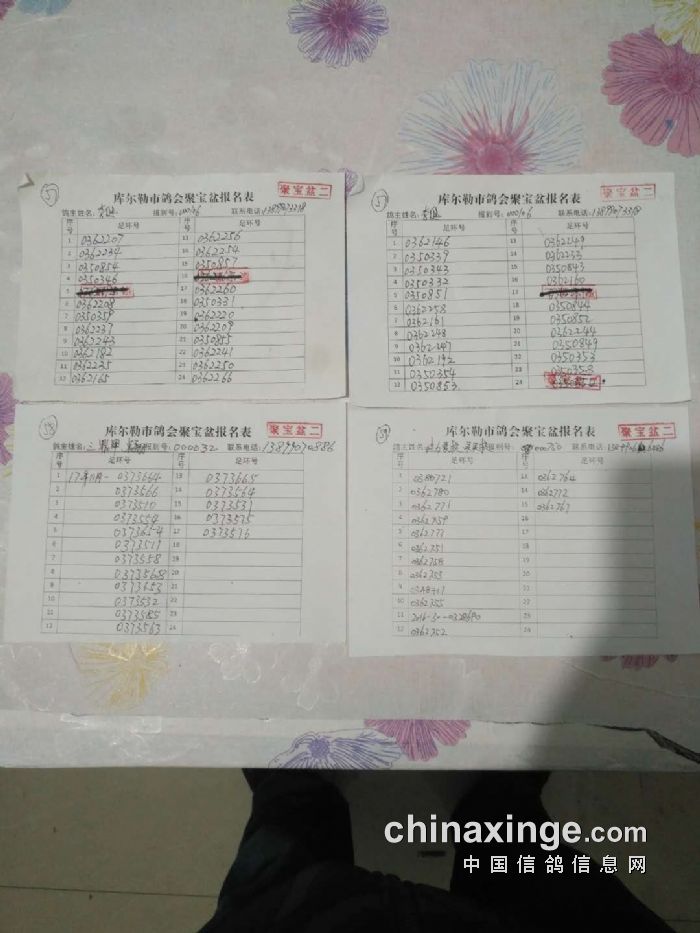 库尔勒市鸽会聚宝盆报名表
聚宝盆二
鸽主姓名:
棚别号:
联系电话:
序号 足环号 序号 足环号
1 0362207 13 0362256
2 0362234 14 0362254
3 0350854 15 0350857
4 0350346 16
5 17 0362260
6 0362208 18 0350331
7 0350359 19 0362220
8 0362237 20 0362209
9 0362243 21 0350855
10 0362182 22 0362241
11 0362235 23 0362250
12 0362165 24 0362266
库尔勒市鸽会聚宝盆报名表
聚宝盆二
鸽主姓名:
棚别号:
联系电话:
序号 足环号 序号 足环号
1 0362146 13 0362249
2 0350339 14 0362233
3 0350343 15 0350843
4 0350332 16 0362160
5 0350851 17
6 0362258 18 0350844
7 0362161 19 0350852
8 0362248 20 0362244
9 0362247 21 0350849
10 0362192 22 0350353
11 0350354 23 0350358
12 0350853 24
库尔勒市鸽会聚宝盆报名表
聚宝盆二
鸽主姓名:
棚别号: 000032
联系电话:
序号 足环号 序号 足环号
1 0373664 13 0373665
2 0373566 14 0373564
3 0373510 15 0373531
4 0373554 16 0373575
5 0373654 17 0373576
6 0373511 18
7 0373558 19
8 0373568 20
9 0373653 21
10 0373532 22
11 0373585 23
12 0373563 24
库尔勒市鸽会聚宝盆报名表
聚宝盆二
鸽主姓名:
棚别号:
联系电话:
序号 足环号 序号 足环号
1 0380721 13 0362764
2 0362780 14 0362772
3 0362771 15 0362767
4 0362759 16
5 0362777 17
6 0362751 18
7 0362758 19
8 0362753 20
9 21
10 0362755 22
11 23
12 0362752 24
chinaxinge.com
中国信鸽信息网